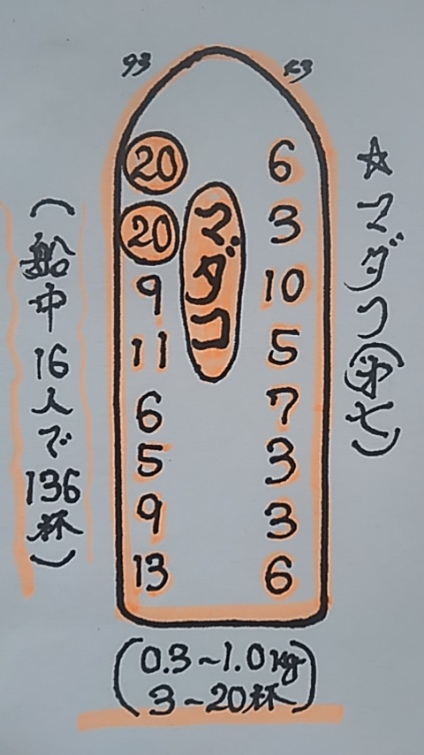 ☆マダコ(㐧七)
93 43
20 6
20 3
9 10
11 5
6 7
5 3
9 3
13 6
マダコ
(0.3~1.0kg
3~20杯)
(船中16人で136杯)